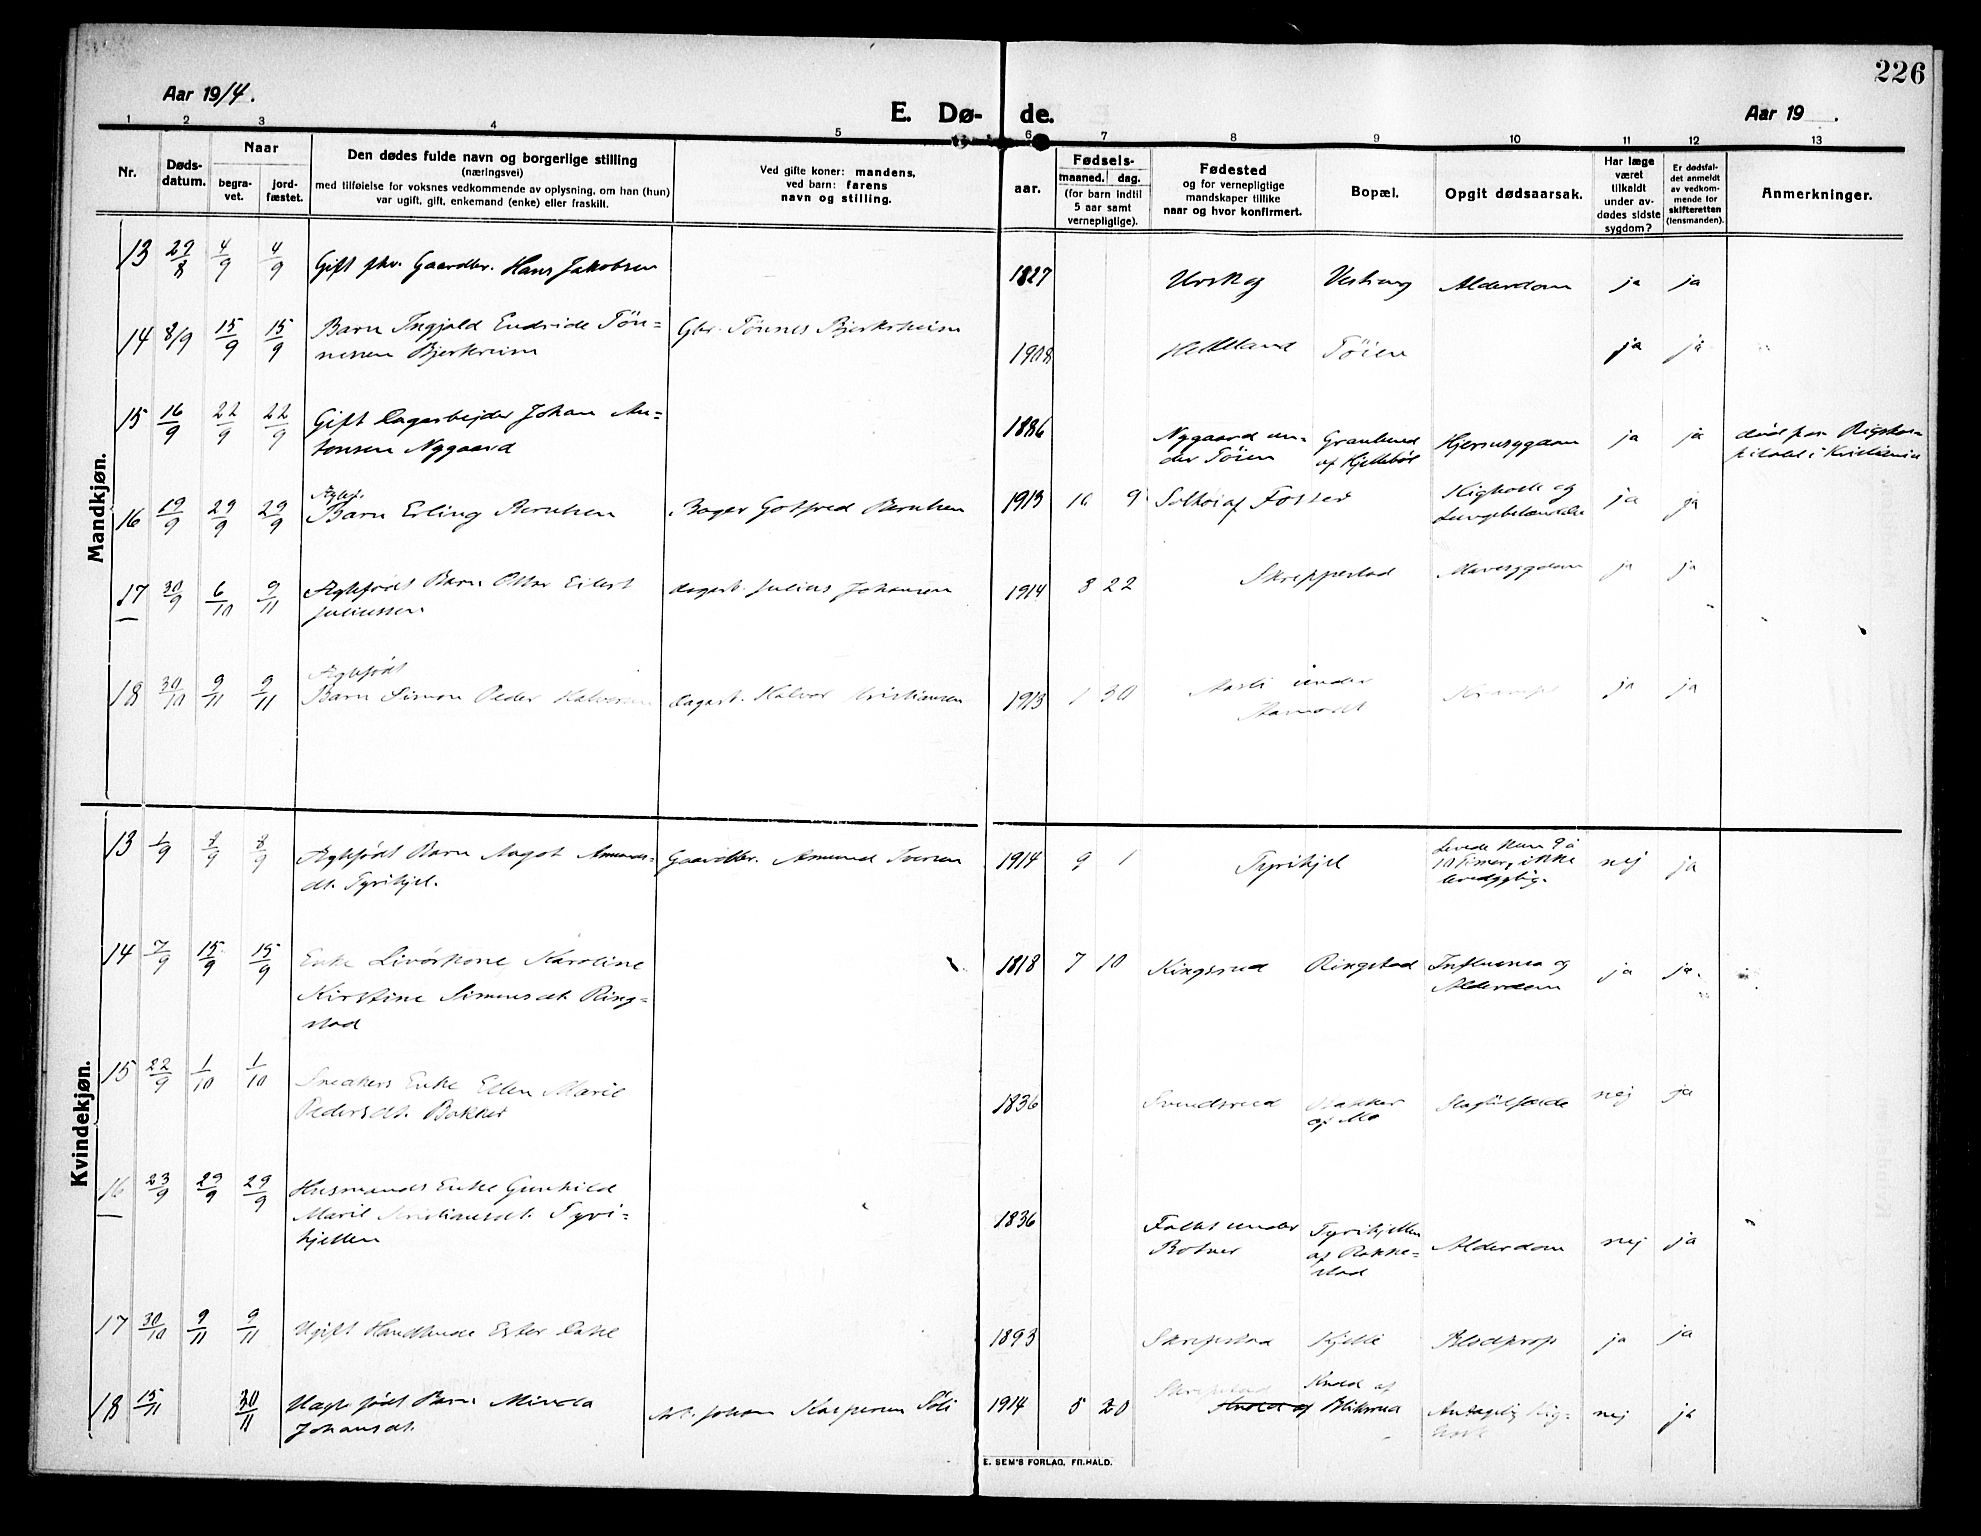 226
Aar 1914.
E. Dø- de.
Aar 19 .
1 2 3 4 5 6 7 8 9 10 11 12 13
Nr.
Døds-
datum.
Naar
begra-
vet.
jord-
fæstet.
Den dødes fulde navn og borgerlige stilling
(næringsvei)
med tilføielse for voksnes vedkommende av oplysning, om han (hun)
var ugift, gift, enkemand (enke) eller fraskilt.
Ved gifte koner: mandens,
ved barn: farens
navn og stilling.
aar.
Fødsels-
maaned. dag.
(for barn indtil
5 aar samt
vernepligtige).
Fødested
og for vernepligtige
mandskaper tillike
naar og hvor konfirmert.
Bopæl.
Opgit dødsaarsak.
Har læge
været
tilkaldt
under av-
dødes sidste
sygdom?
Er dødsfal-
det anmeldt
av vedkom-
mende for
skifteretten
(lensmanden).
Anmerkninger.
Mandkjøn.
13 29/8 4/9 4/9 Gift fhv. Gaardbr. Hans Jakobsen 1827 Urskog Alderdom ja ja
14 8/9 15/9 15/9 Barn Ingjald Endride Tøn-
nesen Bjerkreim
Gbr. Tønnes Bjerkreim 1908 Helleland Tøien ja ja
15 16/9 22/9 22/9 Gift Dagarbejder Johan An-
tonsen Nygaard
1886 Nygaard un-
der Tøien
Granlund
af Kjellebøl
Hjernesygdom ja ja død paa Rigsho-
pitalet i Kristiania
16 19/9 29/9 29/9 Ægtef.
Barn Erling Berntsen Bager Gotfred Berntsen 1913 10 9 af Fosser Kighoste og
Lungebetændelse
ja ja
17 30/9 6/10 9/11 Ægtefødt Barn Ottar Eilert
Juliussen
Dagarb. Julius Johansen 1914 8 22 Skreppestad Mavesygdom ja ja
18 30/10 9/11 9/11 Ægtefødt
Barn Simon Peder Halvorsen Dagarb. Halvor Kristiansen 1913 1 30 Aasli under
Krampe ja ja
Kvindekjøn.
13 1/9 8/9 8/9 Ægtefødt Barn Aagot Amunds-
dt. Tyrihjel.
Gaardbr. Amund Iversen 1914 9 1 Tyrihjel Levede kun 9 à
10 Timer, ikke
levedygtig.
nej ja
14 7/9 15/9 15/9 Enke Livørkone Karoline
Kirstine Simensdt. Ring-
stad
1818 7 10 Kingsrud Ringstad Influensa og
Alderdom
ja ja.
15 22/9 1/10 1/10 Snekkers Enke Ellen Marie
Pedersdt. Bakker
1836 Svendsrud Bakker
af Mo
Slagtilfælde nej ja
16 23/9 29/9 29/9 Husmands Enke Gunhild
Marie Kristiansdt. Tyri-
hjellen
1836 under
Botner
Tyrihjellen
af Rakke-
stad
Alderdom nej ja
17 30/10 9/11 9/11 Ugift Ester Dahl 1893 Skrepestad Kjelle Blodprop ja ja
18 15/11 30/11 Uægtefødt Barn Minda
Johansdt.
Arb. Johan Kaspersen Søli 1914 8 20 Skrepstad
af Bliksrud Antagelig Kig-
host
nej ja
E. SEM'S FORLAG, FR.HALD.